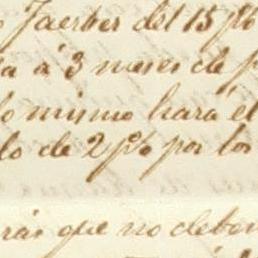 Jaerber del 15 p%
a á 3 meses de p
lo mismo hará él
lo de 2 p% por los
rás que no deben